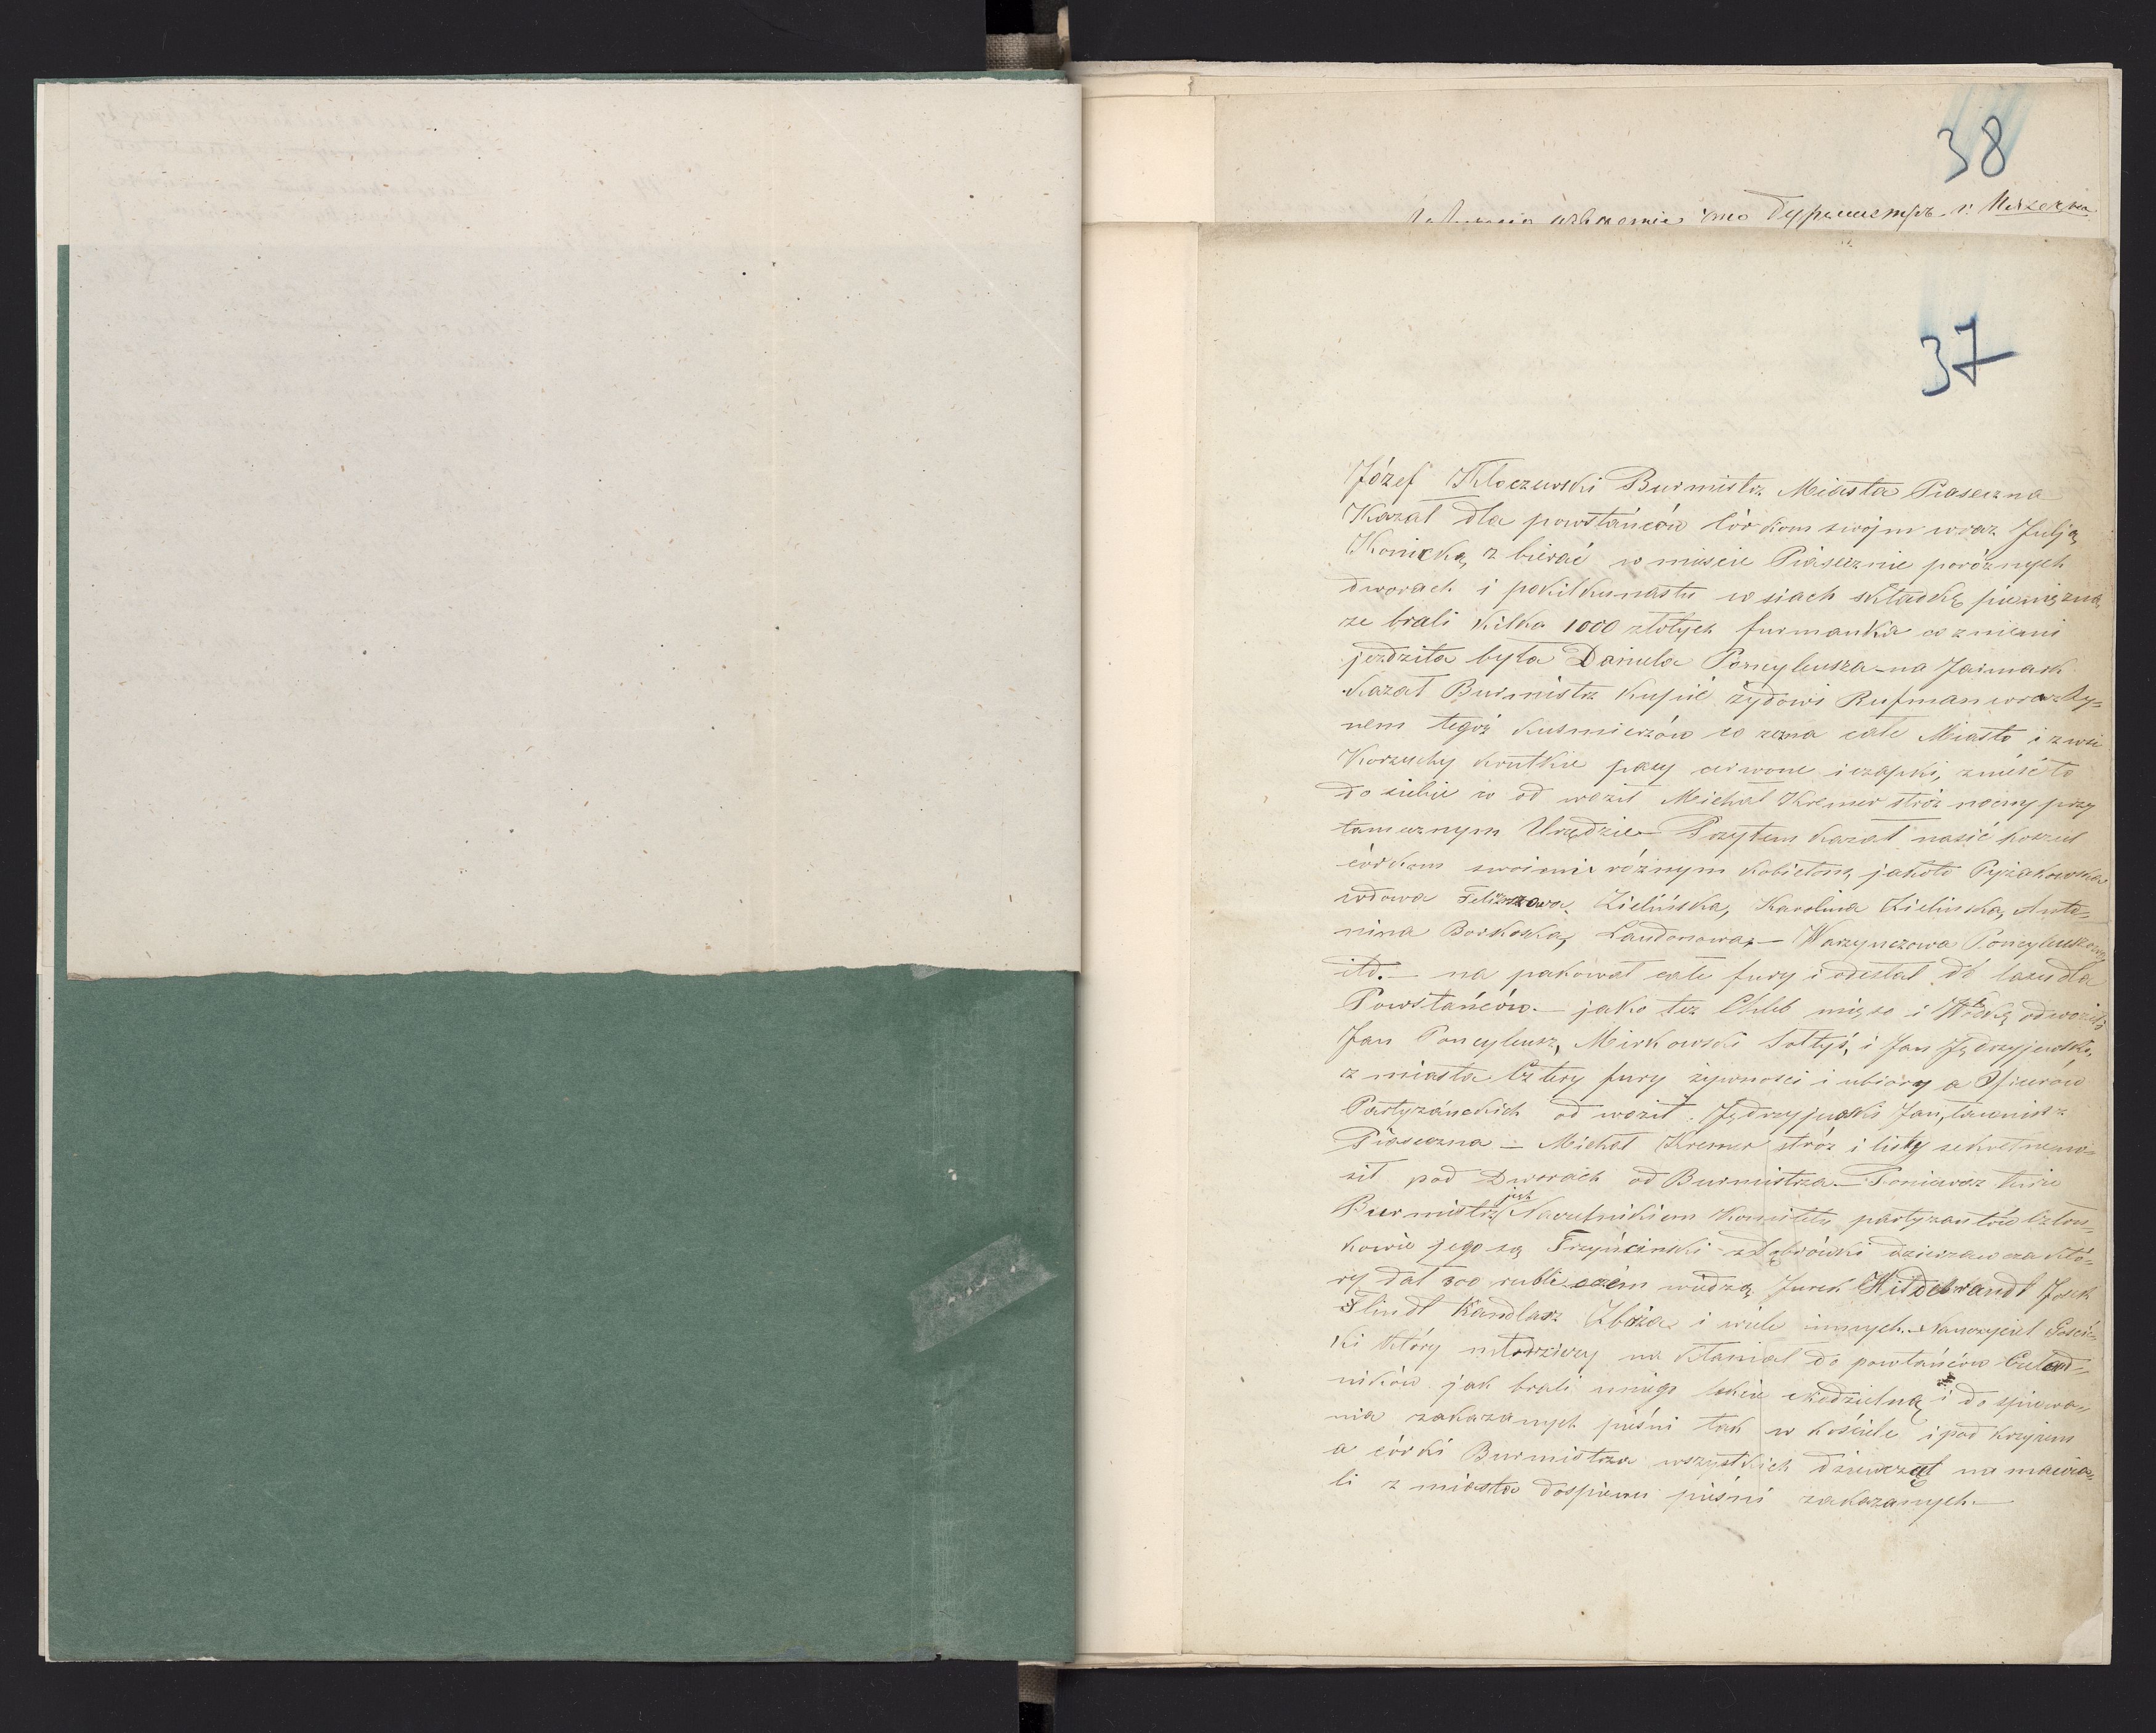 38
Бургомистръ г. Пясечна
37
Józef Kloczewski Burmistrz Miasta Piaseczna
Kazał dla powstańców Córkom swojm wraz Julją
Konicką z bierać w mieście Piasecznie poróżnych
dworach i pokilkunastu wsiach składkę pieniężną,
ze brali kilka 1000 złotych furmanka co zniemi
jezdziła była Daniela Poncyleusza – na Jarmark
Kazał Burmistrz kupić żydowi Rufman wraz Sy=
nem tegoż kusmierzów co zezna całe Miasto i zwsi
Korzuchy krutkie pasy cerwone i czapki, znieść to
do siebie co od woził Michał Kremer stróż nocny przy
tamecznym Urzędzie – Przytem kazał nasić koszul
córkom swoim i różnym kobietom, jakoto Pyzakowska
wdowa Zielińska, Karolina Zielinska, Anto=
nina Borkoska, Laudonowa, – Warzynczowa Poncyleuszowa
itd. – na pakował całe fury i odesłał do lasu dla
Powstańców. – jako tez Chleb mięso i Wódkę odwoził
Jan Poncyleusz, Mirkowski Sołtyś, i Jan Jędrzyjewski,
z miasta Cztery fury zywności i ubiory a Oficerów
Partyzánckich od woził Jędrzyjewski Jan, Ławnik z
Piaseczna – Michał Kremer stróż i listy sekretne no=
sił pod Dworach od Burmistrza. – Poniewaz tenże
Burmistrz jest Naczelnikiem Komitetu partyzantów Człon=
kowie jego są z Dąbrówki dzierzawcza któ=
ry dał 300 rubli oczém wiedzą Jurek Hildebrandt Josek
Flindt Handlarz Zboża i wiele innych. – Nauczyciel
ki który młodzieży na kłaniał do powstańców Czelad=
ników jak brali uniego lekcie Niedzielną i do spiewa=
nia zakazanych pieśni tak w kościele i pod krzyzem
a córki Burmistrza wszystkich dziewcząt na mawia=
li z miasta dospiewu pieśni zakazanych. –